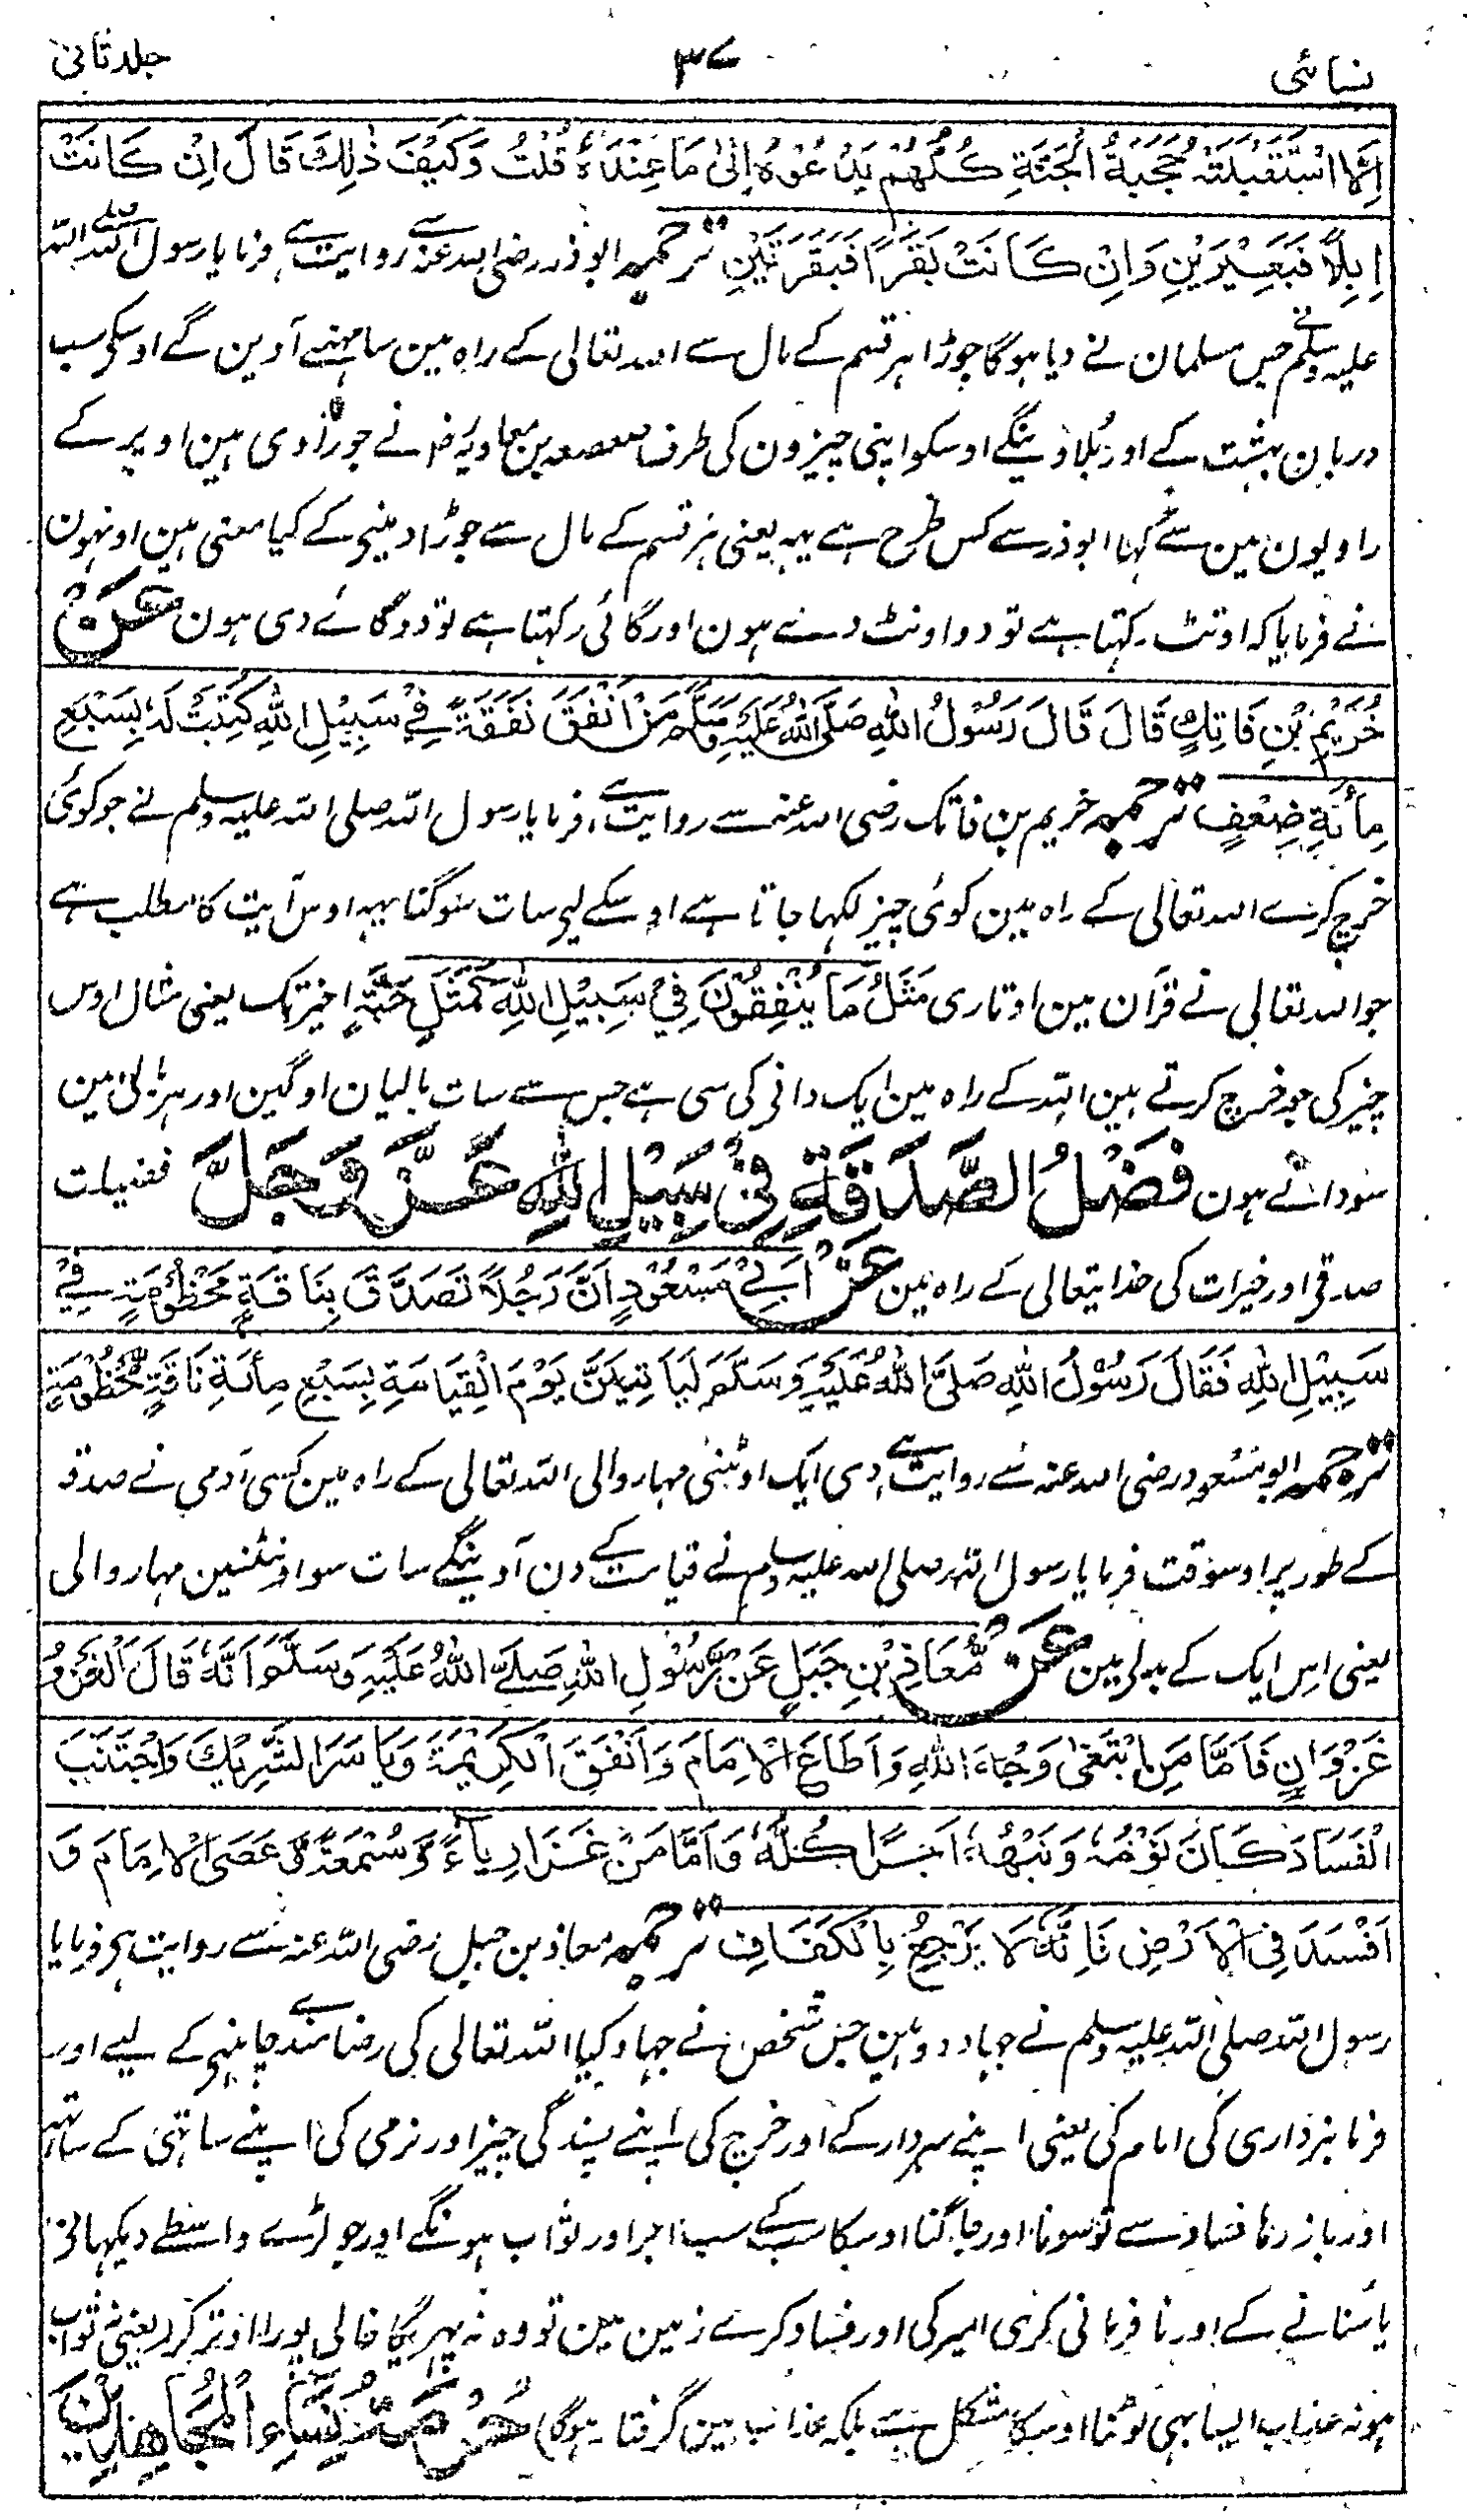 نسائی ۳۷ جلد ثانی
اِلَّا اسْتَقْبَلَتْهُ حَجَبَةُ الْجَنَّةِ كُلُّهُمْ يَدْعُوْهُ اِلٰى مَا عِنْدَهٗ قُلْتُ وَكَيْفَ ذٰلِكَ قَالَ اِنْ كَانَتْ
اِبِلًا فَبَعِيْرَيْنِ وَاِنْ كَانَتْ بَقَرًا فَبَقَرَتَيْنِ ترجمہ ابوذر رضی اللہ عنہ سے روایت ہے فرمایا رسول اللہ صلی اللہ
علیہ وسلم نے جس مسلمان نے دیا ہوگا جوڑا ہر قسم کے مال سے اللہ تعالی کے راہ مین سامہنے آوین گے اوسکی سب
دربان بہشت کے اور بلاوینگے اوسکو اپنی چیزون کی طرف صعصعہ بن معاویہ رض نے جو راوی ہین اوپر کے
راویون مین سے کہا ابوذر سے کس طرح ہے یہہ یعنی ہر قسم کے مال سے جوڑا دینی کے کیا معنی ہین اونہون
نے فرمایا کہ اونٹ رکہتا ہے تو دو اونٹ دئے ہون اور گائی رکہتا ہے تو دو گائے دی ہون عَنْ
خُرَيْمِ بْنِ فَاتِكٍ قَالَ قَالَ رَسُوْلُ اللّٰهِ صَلَّى اللّٰهُ عَلَيْهِ وَسَلَّمَ مَنْ اَنْفَقَ نَفَقَةً فِيْ سَبِيْلِ اللّٰهِ كُتِبَتْ لَهٗ بِسَبْعِ
مِأَئَةِ ضِعْفٍ ترجمہ خریم بن فاتک رضی اللہ عنہ سے روایت ہے فرمایا رسول اللہ صلی اللہ علیہ وسلم نے جو کوئی
خرچ کرے اللہ تعالی کے راہ مین کوئی چیز لکہا جاتا ہے اوسکے لیی سات سو گنا یہہ اوس آیت کا مطلب ہے
جو اللہ تعالی نے قرآن مین اوتاری مَثَلُ مَا يُنْفِقُوْنَ فِيْ سَبِيْلِ اللّٰهِ كَمَثَلِ حَبَّةٍ اخیر تک یعنی مثال اوس
چیز کی جو خرچ کرتے ہین اللہ کے راہ مین ایک دانی کی سی ہے جس سے سات بالیان اوگین اور ہر بالی مین
سو دانے ہون فَضْلُ الصَّدَقَةِ فِيْ سَبِيْلِ اللّٰهِ عَزَّ وَجَلَّ فضیلت
صدقی اور خیرات کی خدایتعالی کے راہ مین عَنْ اَبِيْ مَسْعُوْدٍ اَنَّ رَجُلًا تَصَدَّقَ بِنَاقَةٍ مَخْطُوْمَةٍ فِيْ
سَبِيْلِ اللّٰهِ فَقَالَ رَسُوْلُ اللّٰهِ صَلَّى اللّٰهُ عَلَيْهِ وَسَلَّمَ لَيَاْتِيَنَّ يَوْمَ الْقِيَامَةِ بِسَبْعِ مِأَئَةِ نَاقَةٍ مَخْطُوْمَةٍ
ترجمہ ابو مسعود رضی اللہ عنہ سے روایت ہے دی ایک اونٹنی مہار والی اللہ تعالی کے راہ مین کسی آدمی نے صدقہ
کے طور پر اوسوقت فرمایا رسول اللہ صلی اللہ علیہ وسلم نے قیامت کے دن آوینگے سات سو اونٹنین مہار والی
یعنی اس ایک کے بدلی مین عَنْ مُّعَاذِ بْنِ جَبَلٍ عَنْ رَّسُوْلِ اللّٰهِ صَلَّى اللّٰهُ عَلَيْهِ وَسَلَّمَ اَنَّهٗ قَالَ الْغَزْوُ
غَزْوَانِ فَاَمَّا مَنِ ابْتَغٰى وَجْهَ اللّٰهِ وَاَطَاعَ الْاِمَامَ وَاَنْفَقَ الْكَرِيْمَةَ وَيَاسَرَ الشَّرِيْكَ وَاجْتَنَبَ
الْفَسَادَ كَانَ نَوْمُهٗ وَنَبْهُهٗ اَجْرًا كُلُّهٗ وَاَمَّا مَنْ غَزَا رِيَاءً وَّسُمْعَةً وَّعَصَى الْاِمَامَ وَ
اَفْسَدَ فِى الْاَرْضِ فَاِنَّهٗ لَا يَرْجِعُ بِالْكَفَافِ ترجمہ معاذ بن جبل رضی اللہ عنہ سے روایت ہی فرمایا
رسول اللہ صلی اللہ علیہ وسلم نے جہاد دو ہین جس شخص نے جہاد کیا اللہ تعالی کی رضامندی چاہنی کے لیے اور
فرمانبرداری کی امام کی یعنی اپنے سردار کے اور خرچ کی اپنے پسند کی چیز اور نرمی کی اپنے ساتہی کے ساتہہ
اور باز رہا فساد سے تو سونا اور جاگنا اوسکا سب کے سب اجر اور ثواب ہونگے اور جو لڑے واسطے دیکہانی
یا سنانے کے اور نافرمانی کری امیر کی اور فساد کرے زمین مین تو وہ نہ پہریگا خالی پورا اوتر کر (یعنی نہ ثواب
ہو نہ عذاب ایسا بہی لوٹنا اوسکا مشکل ہے بلکہ عذاب مین گرفتار ہوگا) حُرْمَةُ نِسَاءِ الْمُجَاهِدِيْنَ